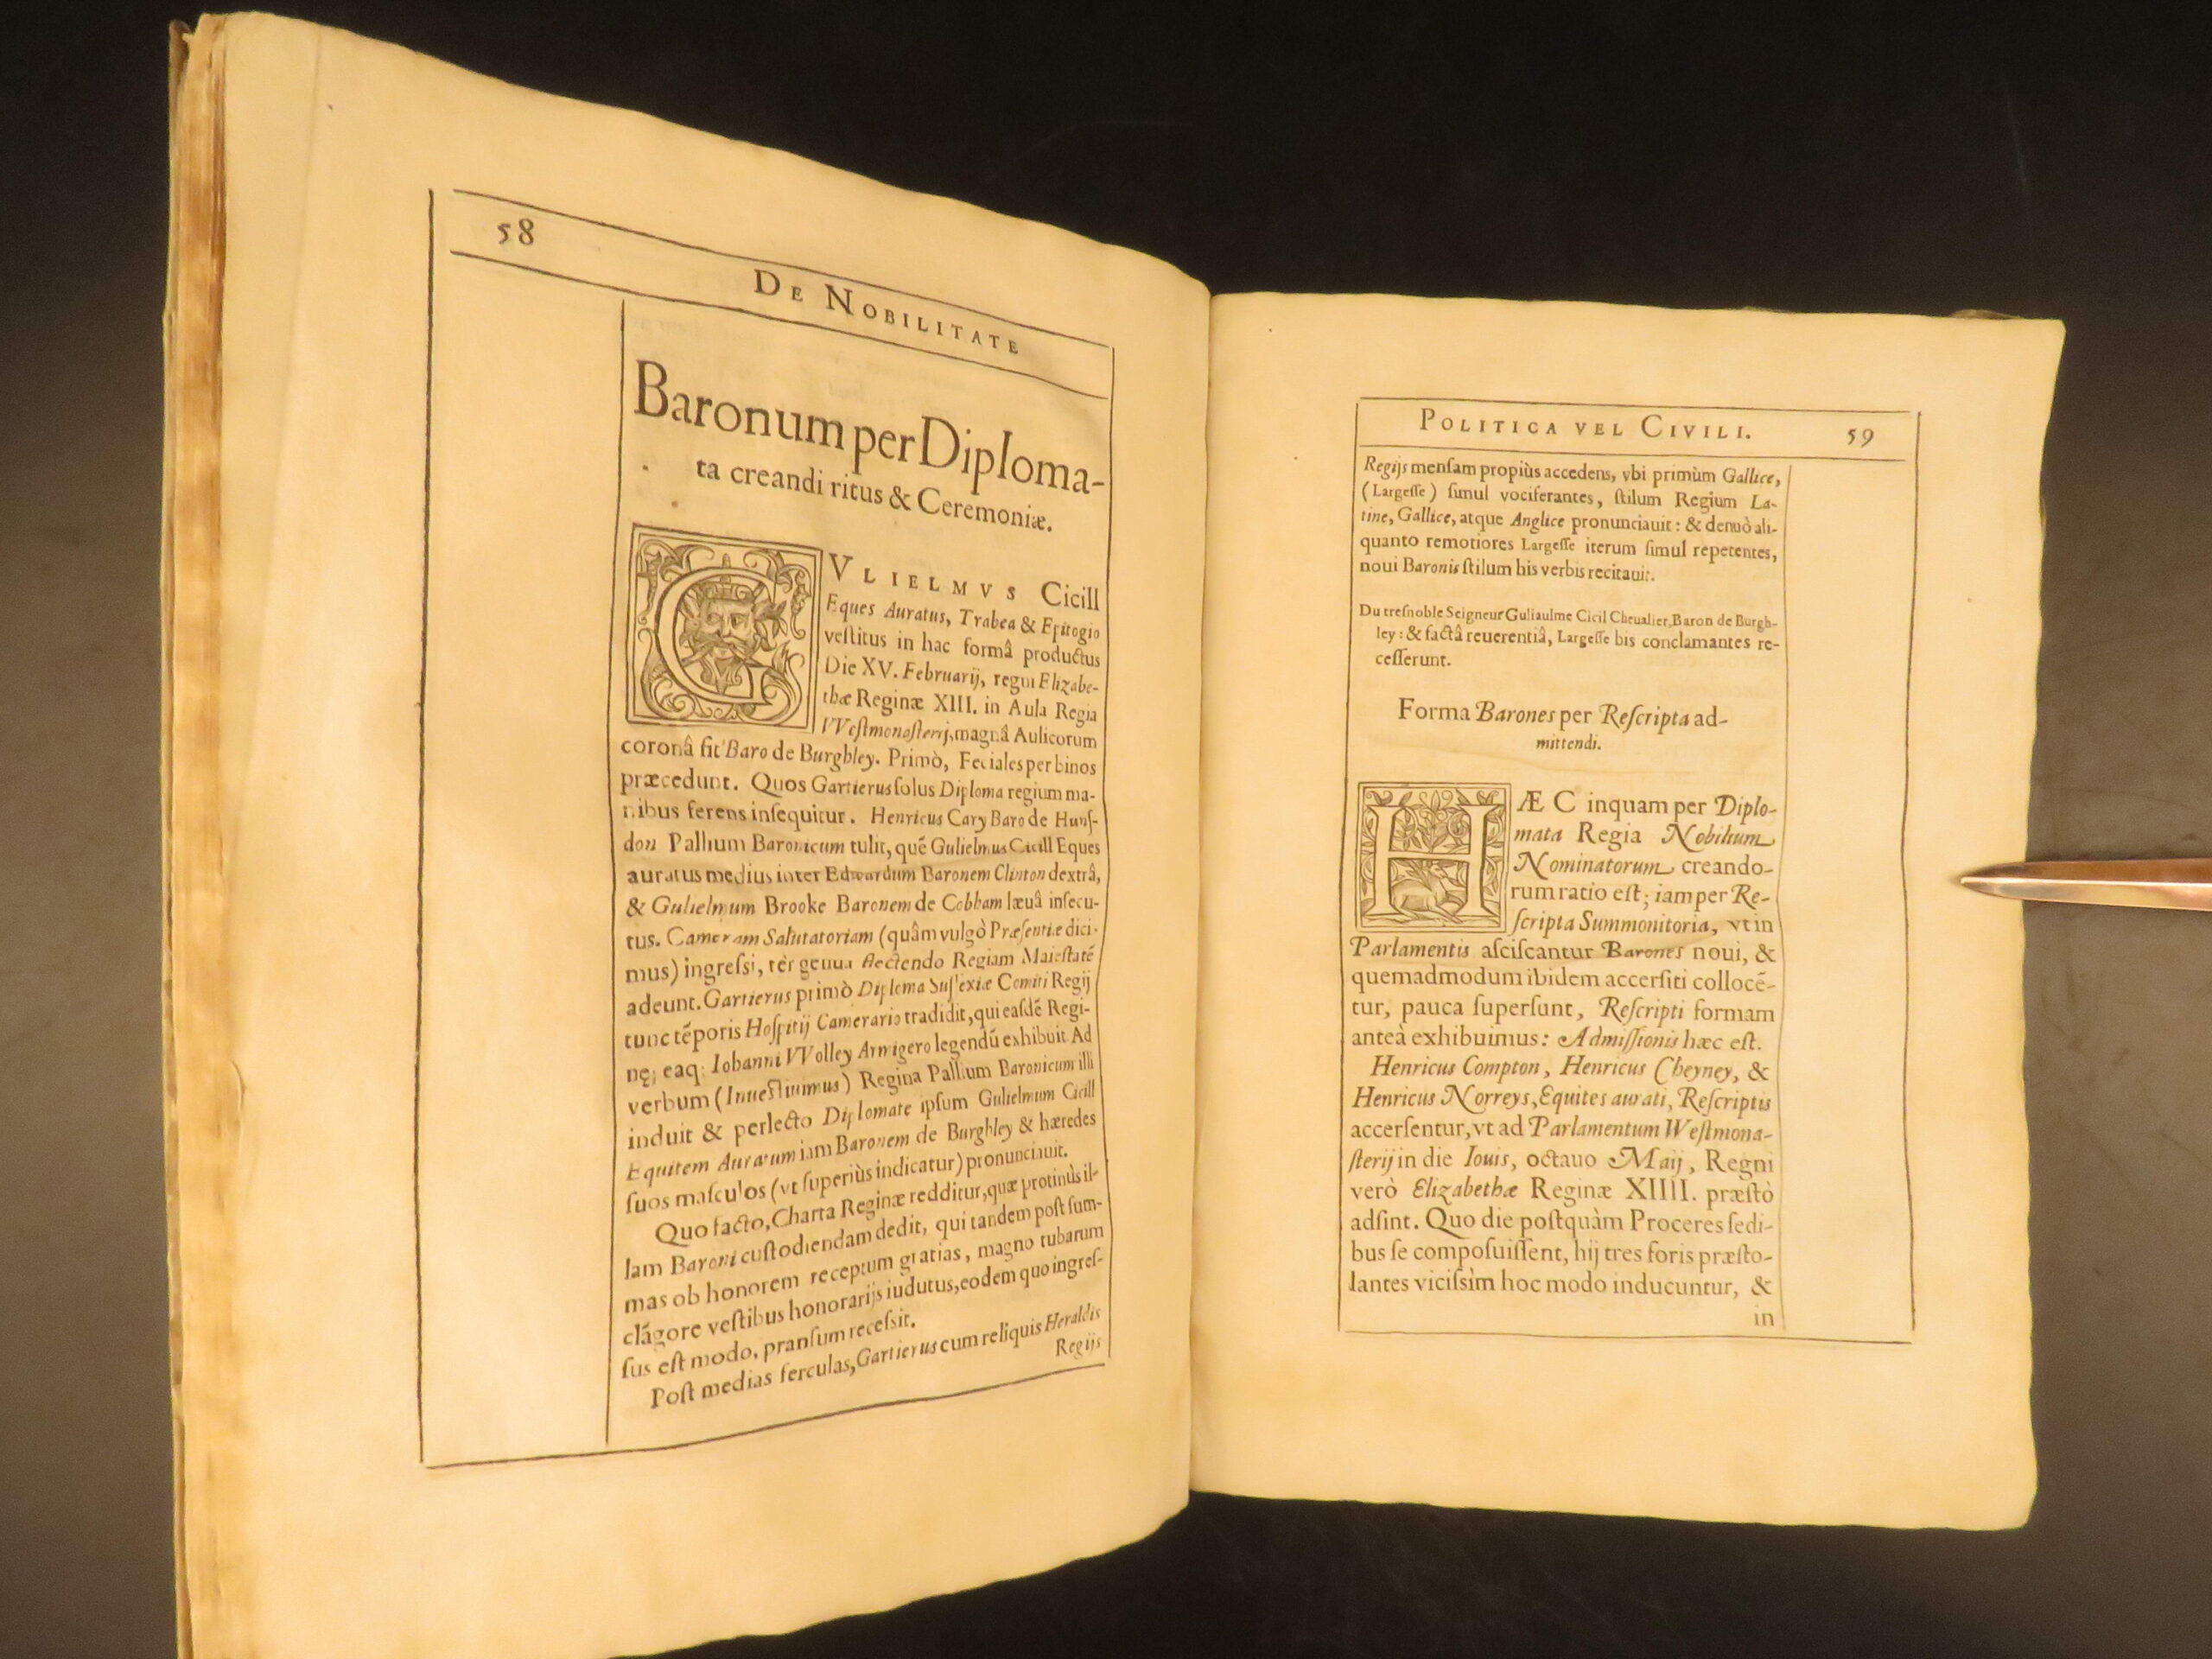 58
De Nobilitate
Baronum per Diploma-
ta creandi ritus & Ceremoniæ.
GVLIELMVS Cicill
Eques Auratus, Trabea & Epitogio
veſtitus in hac formâ productus
Die XV. Februarij, regni Elizabe-
thæ Reginæ XIII. in Aula Regia
VVeſtmonaſterij, magnâ Aulicorum
coronâ fit Baro de Burghley. Primò, Feciales per binos
præcedunt. Quos Gartierus ſolus Diploma regium ma-
nibus ferens inſequitur. Henricus Cary Baro de Hunſ-
don Pallium Baronicum tulit, quẽ Gulielmus Cicill Eques
auratus medius inter Edwardum Baronem Clinton dextrâ,
& Gulielmum Brooke Baronem de Cobham læuâ inſecu-
tus. Cameram Salutatoriam (quâm vulgò Præſentiæ dici-
mus) ingreſsi, tèr genua flectendo Regiam Maieſtatẽ
adeunt. Gartierus primò Diploma Suſſexiæ Comiti Regij
tunc tẽporis Hoſpitij Camerario tradidit, qui eaſdẽ Regi-
nę; eaq; Iohanni VVolley Armigero legendũ exhibuit Ad
verbum (Inueſtiuimus) Regina Pallium Baronicum illi
induit & perlecto Diplomate ipſum Gulielmum Cicill
Equitem Auratum iam Baronem de Burghley & hæredes
ſuos maſculos (vt ſuperiùs indicatur) pronunciauit.
Quo facto, Charta Reginæ redditur, quæ protinùs il-
lam Baroni cuſtodiendam dedit, qui tandem poſt ſum-
mas ob honorem receptum gratias, magno tubarum
clãgore veſtibus honorarijs indutus, eodem quo ingreſ-
ſus eſt modo, pranſum receſsit.
Poſt medias ferculas, Gartierus cum reliquis Heraldis
Regijs
Politica vel Civili.
59
Regijs menſam propiùs accedens, vbi primùm Gallice,
(Largeſſe) ſimul vociferantes, ſtilum Regium La-
tine, Gallice, atque Anglice pronunciauit: & denuò ali-
quanto remotiores Largeſſe iterum ſimul repetentes,
noui Baronis ſtilum his verbis recitauit.
Du treſnoble Seigneur Guliaulme Cicil Cheualier, Baron de Burgh-
ley: & factâ reuerentiâ, Largeſſe bis conclamantes re-
ceſſerunt.
Forma Barones per Reſcripta ad-
mittendi.
HÆC inquam per Diplo-
mata Regia Nobilium
Nominatorum creando-
rum ratio eſt; iam per Re-
ſcripta Summonitoria, vt in
Parlamentis aſciſcantur Barones noui, &
quemadmodum ibidem accerſiti collocẽ-
tur, pauca ſuperſunt, Reſcripti formam
anteà exhibuimus: Admiſſionis hæc eſt.
Henricus Compton, Henricus Cheyney, &
Henricus Norreys, Equites aurati, Reſcriptis
accerſentur, vt ad Parlamentum Weſtmona-
ſterij in die Iouis, octauo Maij, Regni
verò Elizabethæ Reginæ XIIII. præſtò
adſint. Quo die poſtquàm Proceres ſedi-
bus ſe compoſuiſſent, hij tres foris præſto-
lantes viciſsìm hoc modo inducuntur, &
in